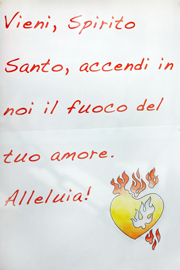 Vieni, Spirito
Santo, accendi in
noi il fuoco del
tuo amore.
Alleluia!